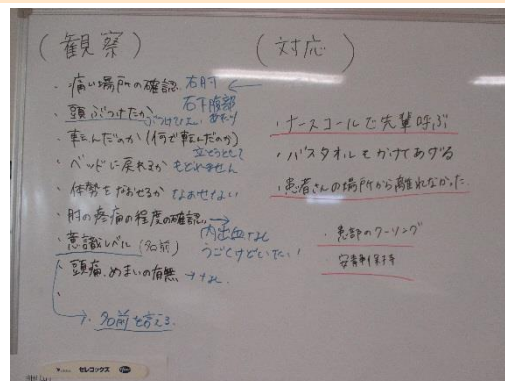 (観察)
・痛い場所の確認 右肘
右下腹部
・頭ぶつけたか ぶつけてない
・転んだのか(何で転んだのか)
立とうとして
・ベッドに戻れるか もどれません
・体勢をなおせるか なおせない
・肘の疼痛の程度の確認 →
内出血なし
・意識レベル(名前) うごくけどいたい!
・頭痛、めまいの有無 → なし
→ ・名前を言える
(対応)
・ナースコールで先輩呼ぶ
・バスタオルをかけてあげる
・患者さんの場所から離れなかった
・患部のクーリング
安静保持
セレコックス